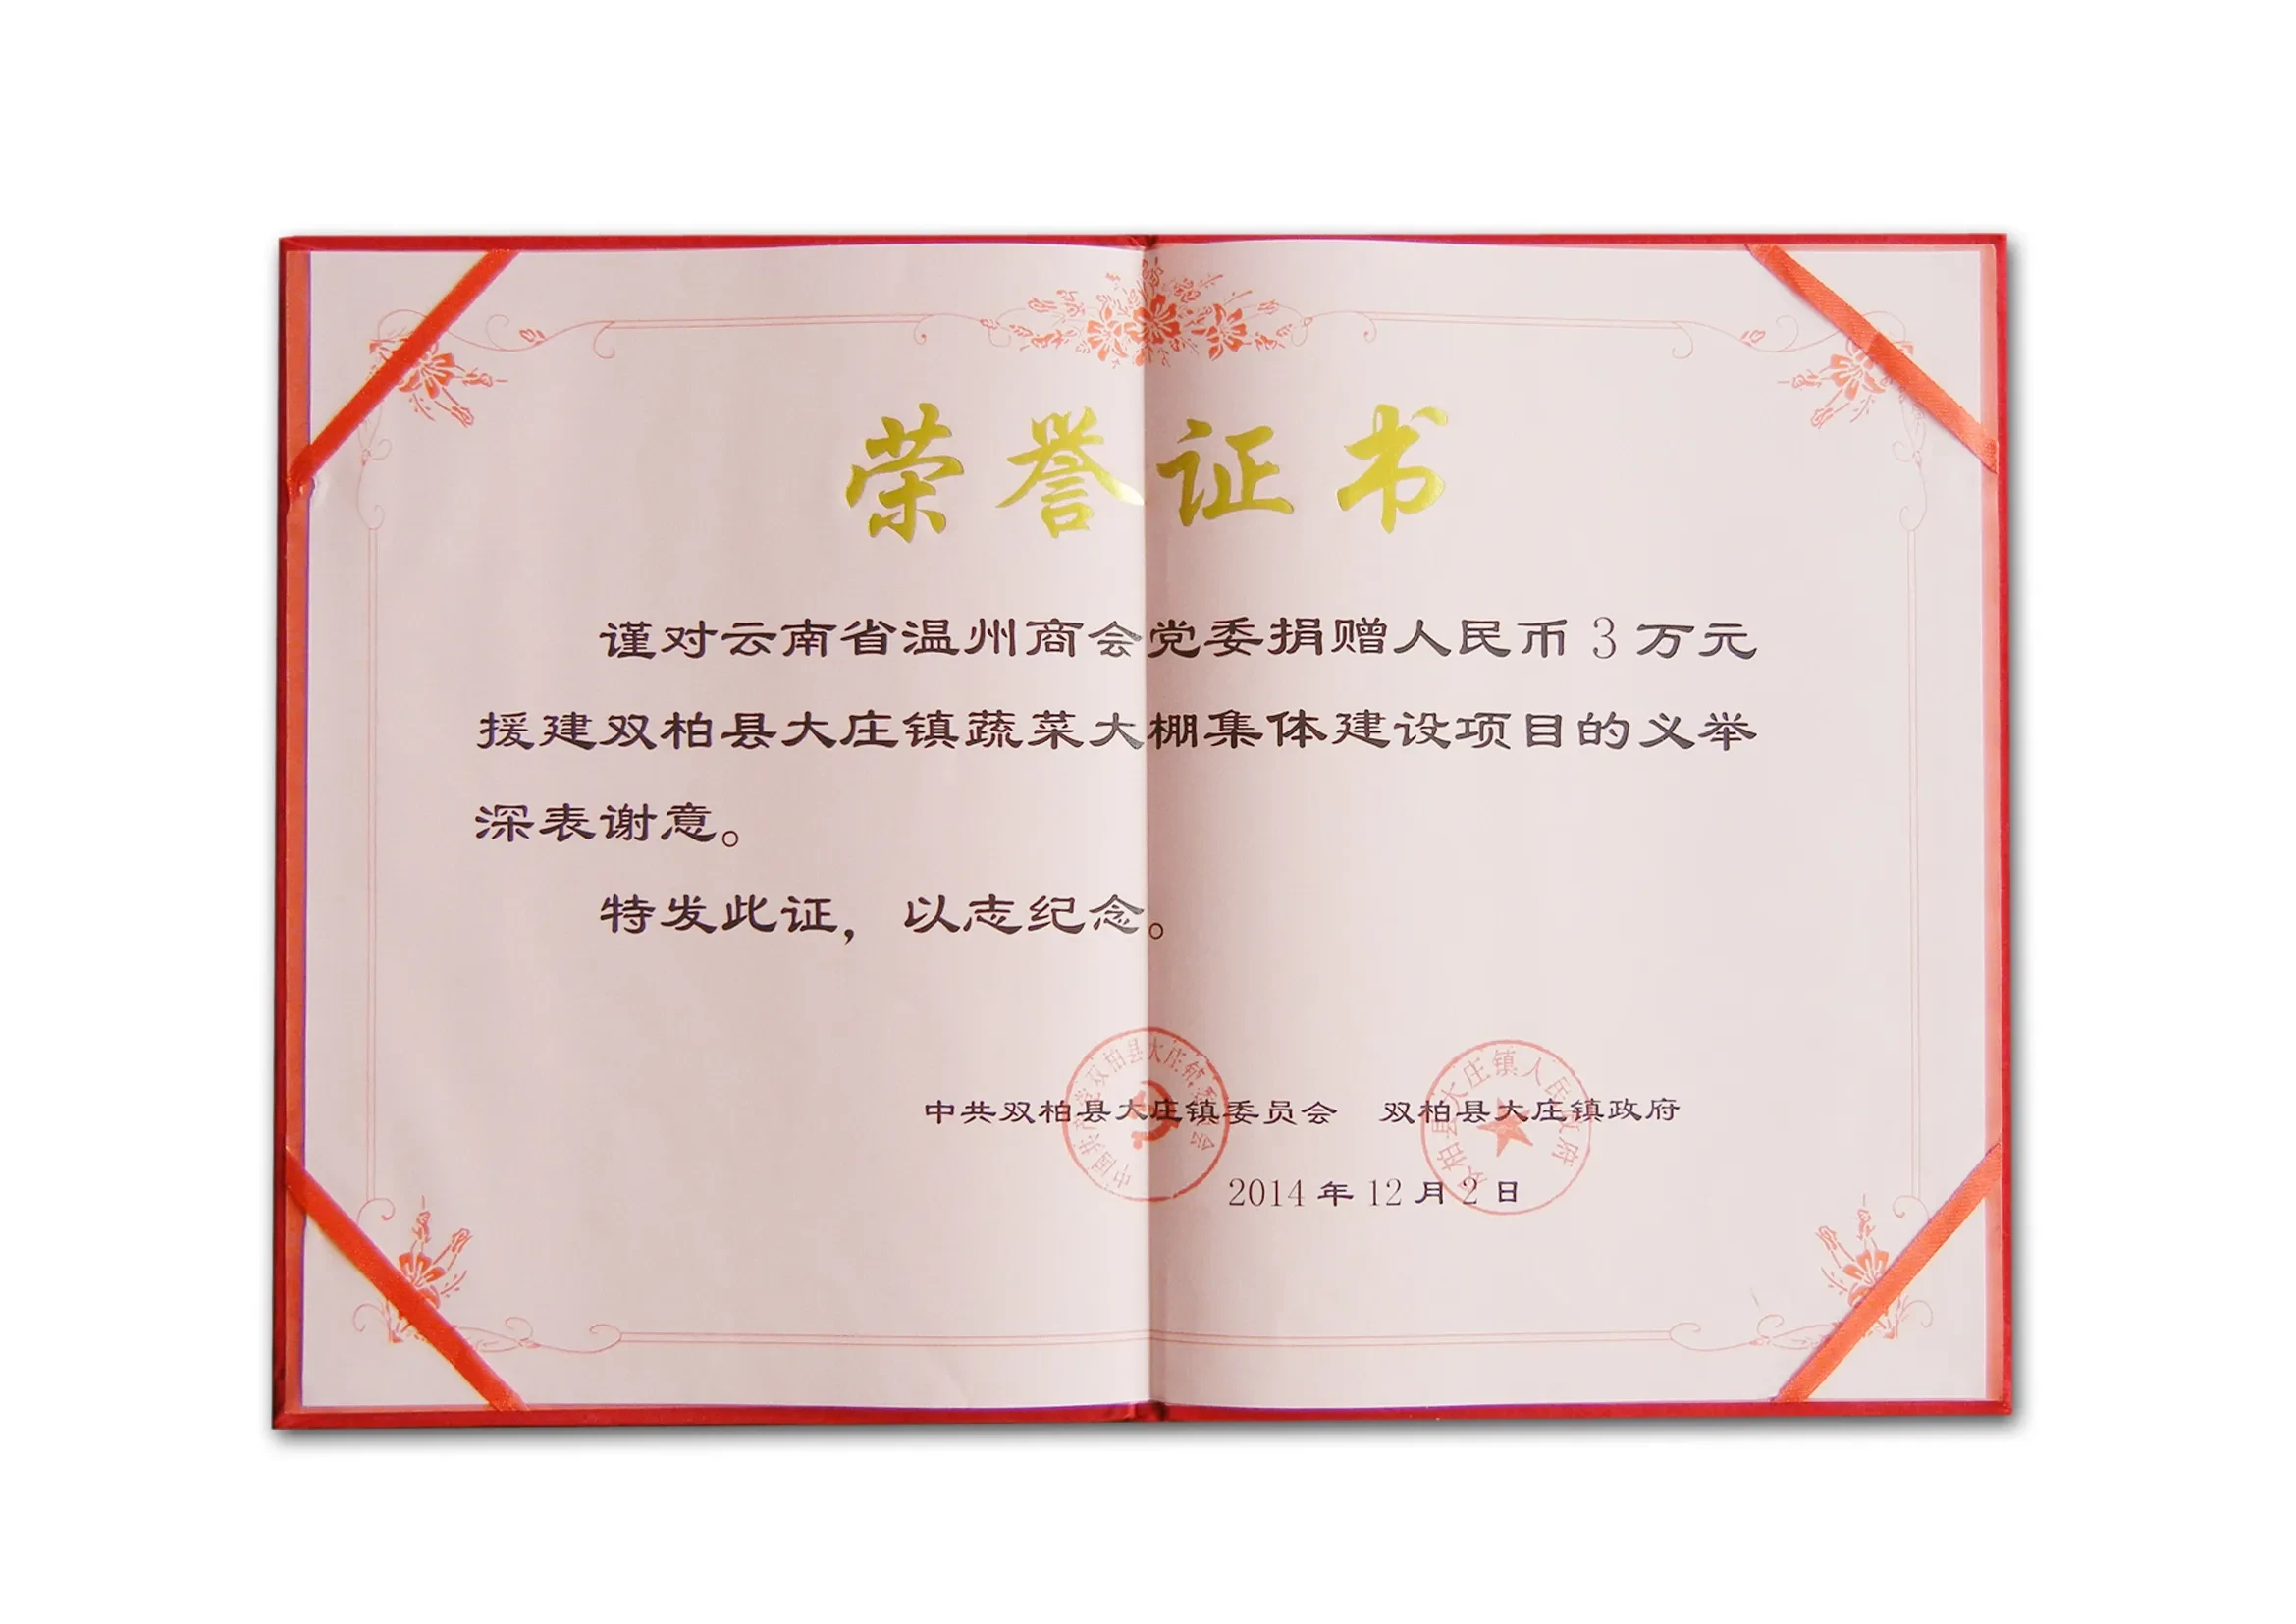 荣誉证书
谨对云南省温州商会党委捐赠人民币3万元
援建双柏县大庄镇蔬菜大棚集体建设项目的义举
深表谢意。
特发此证，以志纪念。
中国共产党双柏县大庄镇委员会
双柏县大庄镇人民政府
中共双柏县大庄镇委员会 双柏县大庄镇政府
2014年12月2日